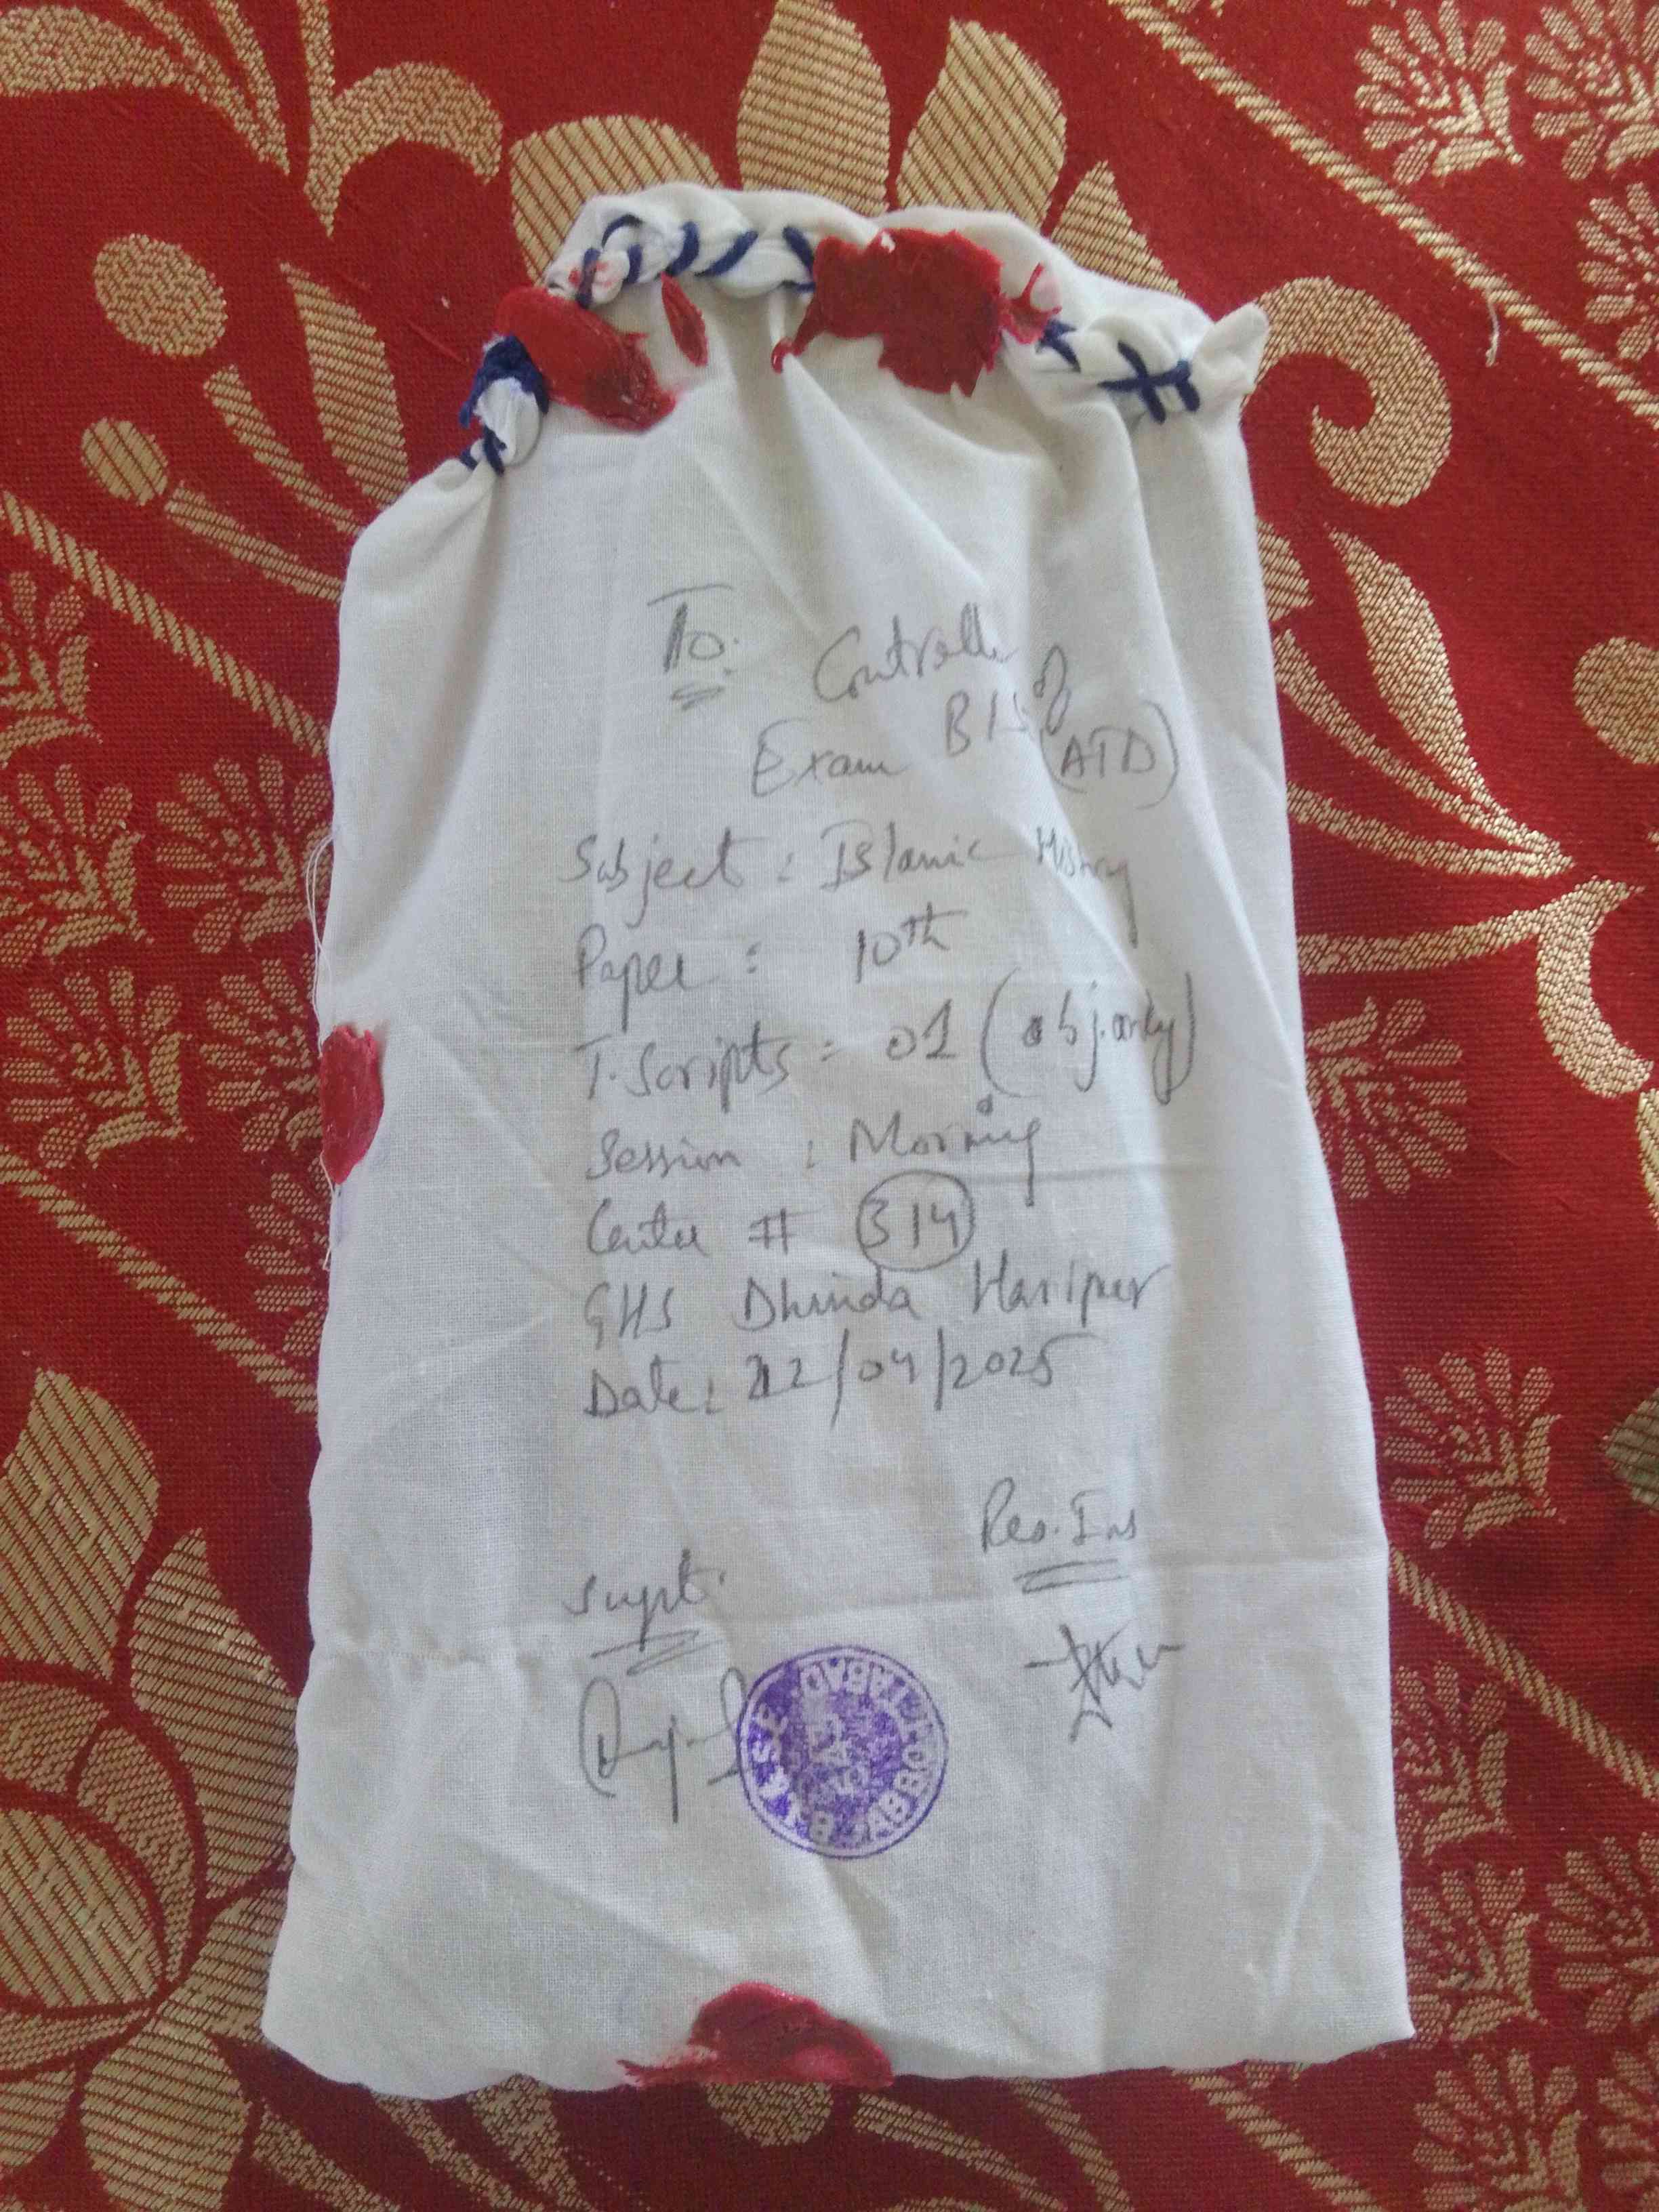 To:
Controller of
Exam BIS (ATD)
Subject: Islamic History
Paper: 10th
T. Scripts: 01 (obj. only)
Session: Morning
Center # 314
GHS Dhinda Haripur
Date: 22/04/2025
Res. Ins
Supt.
B.I.&S.E. ABBOTTABAD